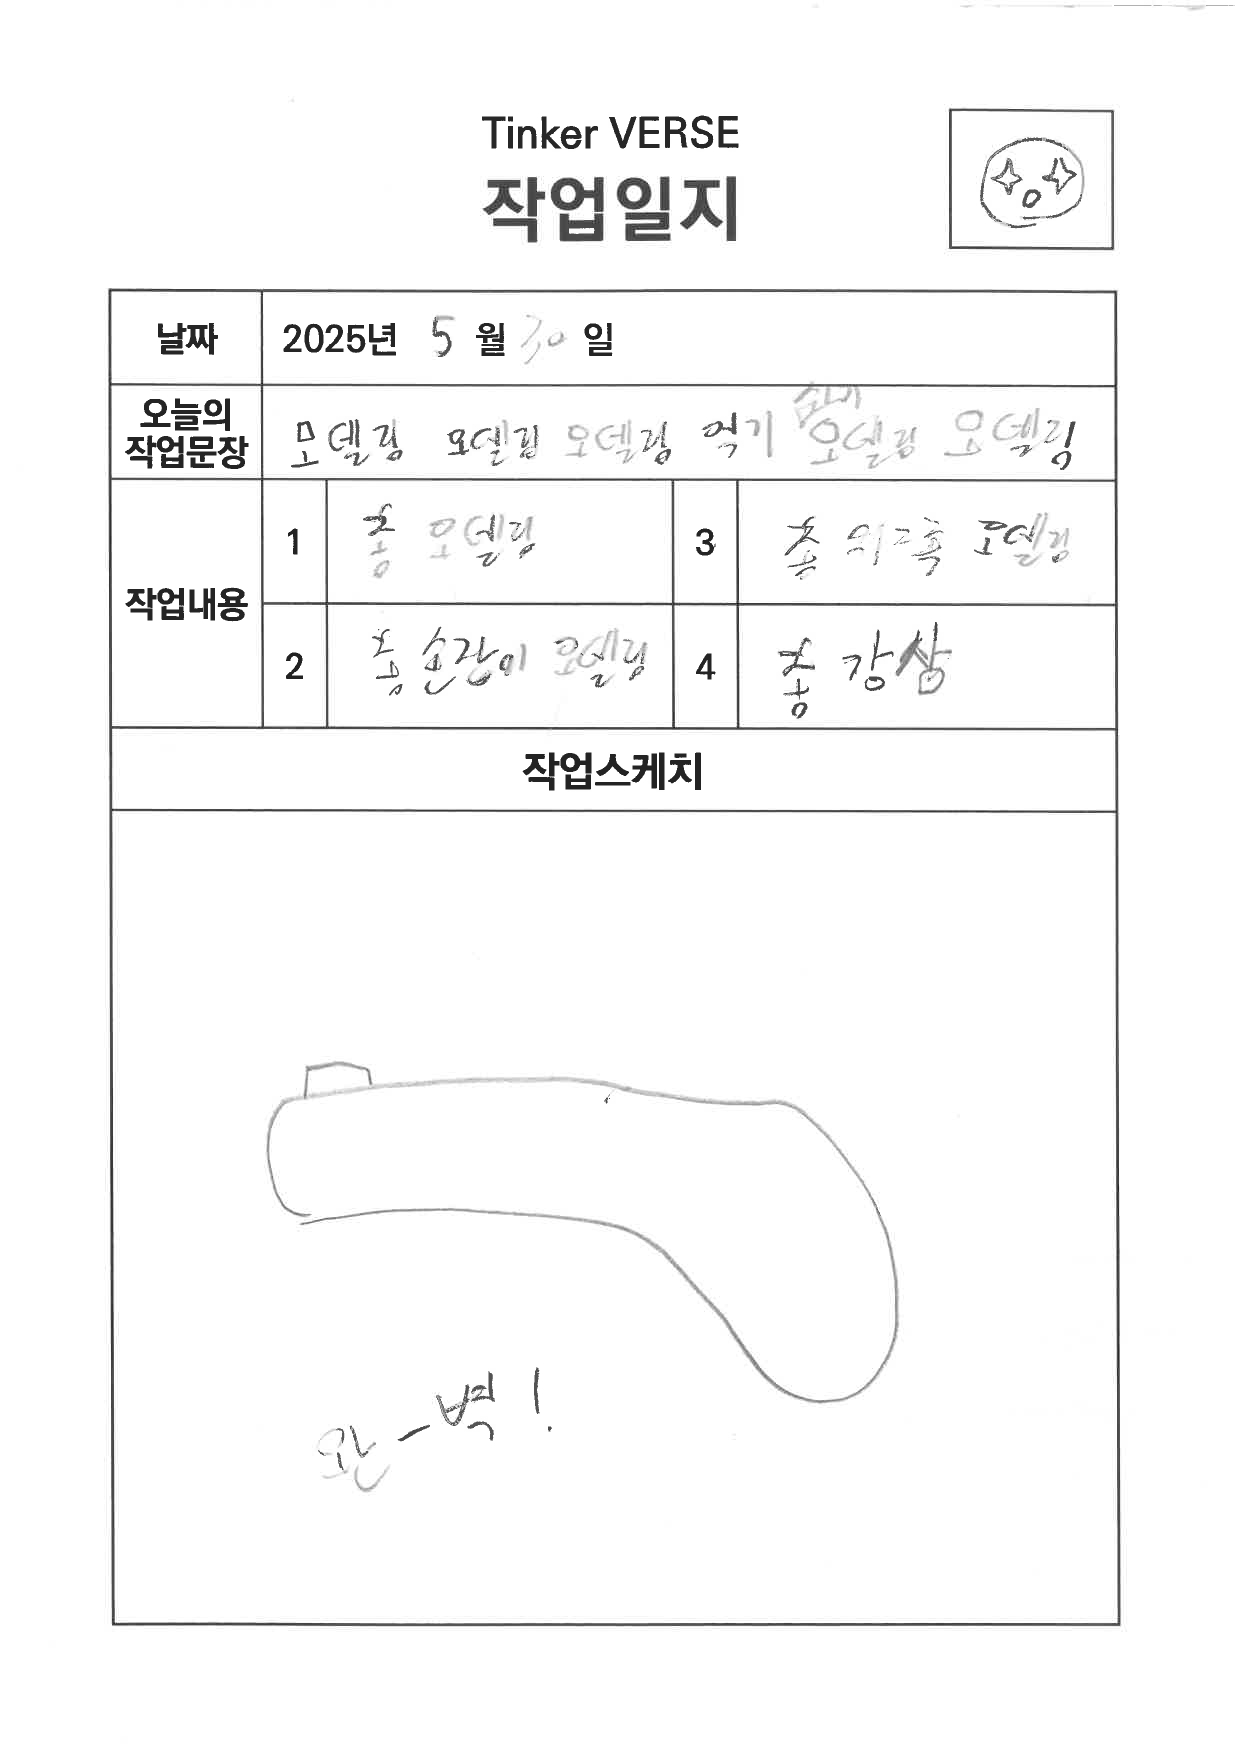 Tinker VERSE
작업일지
날짜
2025년 5월 30일
오늘의
작업문장
모델링 모델링 모델링 먹기 모델링 모델링
작업내용
1
총 모델링
3
총 모델링
2
총 손잡이 모델링
4
총 감상
작업스케치
완-벽!